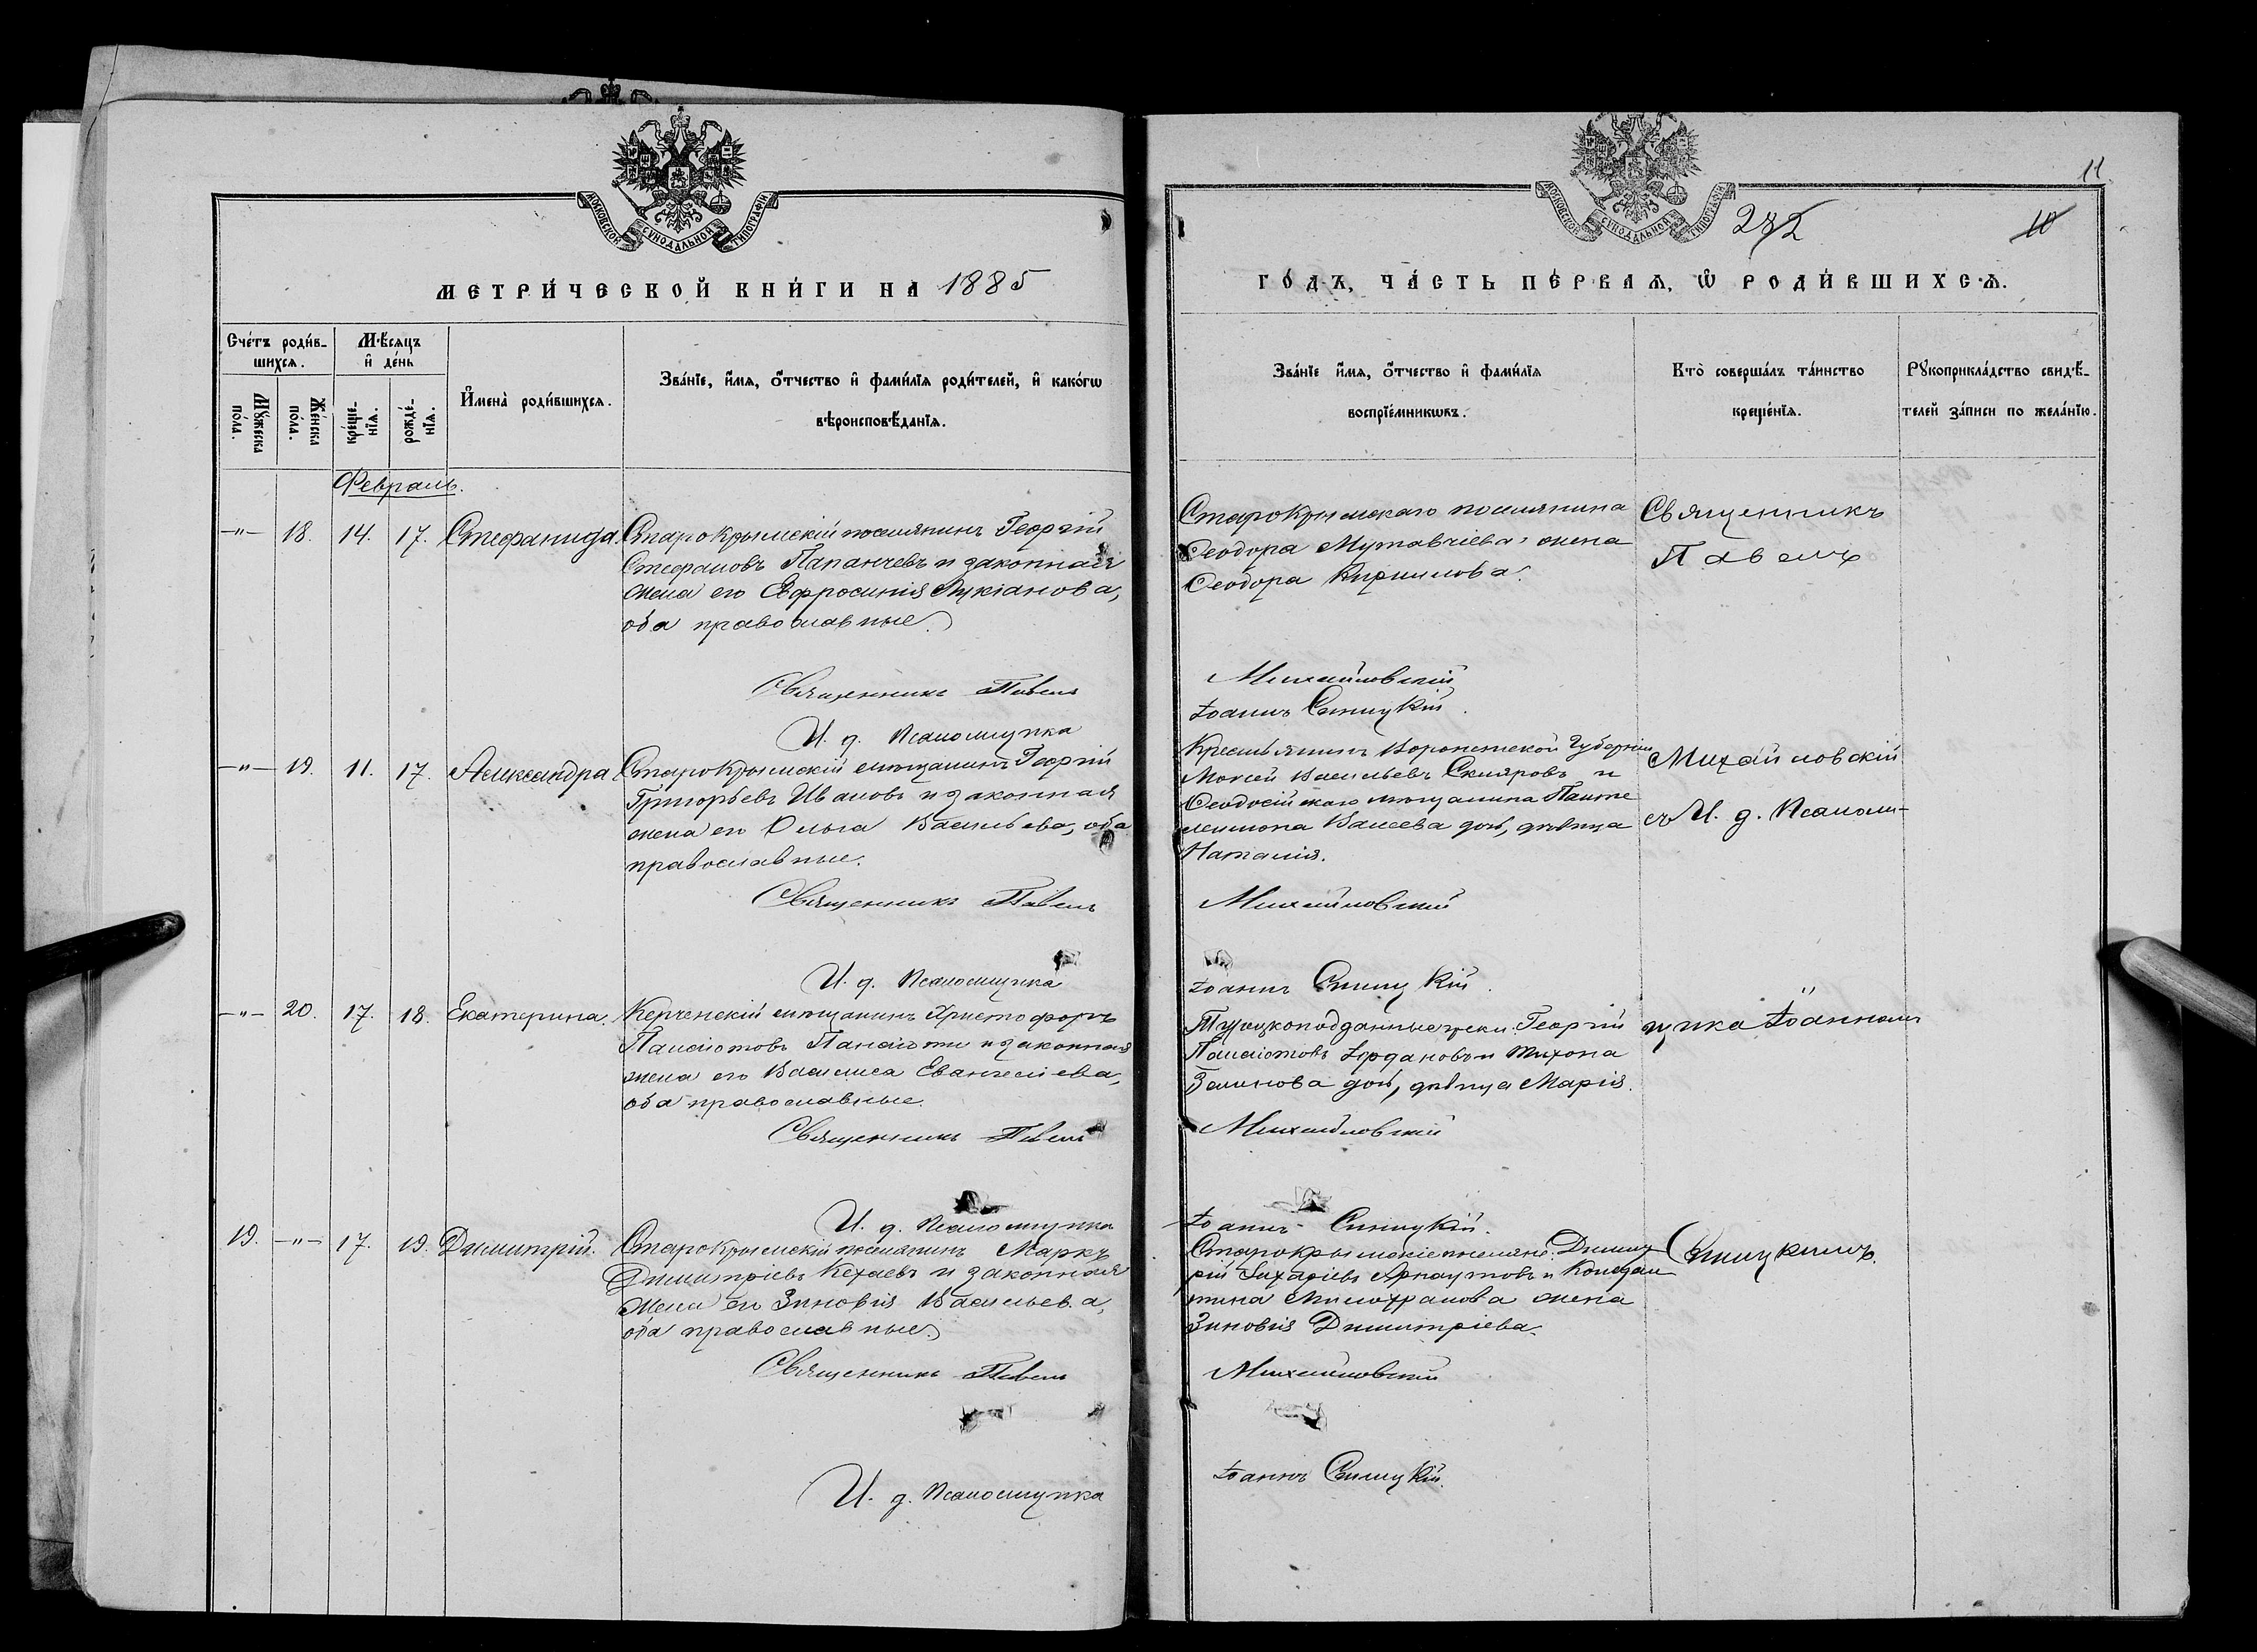 МОСКОВСКОЙ СѴНОДАЛЬНОЙ ТИПОГРАФІИ
МЕТРИ́ЧЕСКОЙ КНИ́ГИ НА 1885
Сче́тъ роди́в-
шихся.
Мѣ́сяцъ
и҆ де́нь
Мꙋ́жеска
по́ла.
Же́нска
по́ла.
креще́-
нїѧ.
рожде́-
нїѧ.
И҆мена̀ роди́вшихся.
Зва́нїе, и҆́мѧ, ѻ҆́тчество и҆ фами́лїѧ роди́телей, и҆ како́гѡ
вѣроисповѣ́данїѧ.
Февраль.
—"— 18. 14. 17. Стефанида.
Старокрымскій поселянинъ Георгій
Стефановъ Папанчевъ и законная
жена его Евфросинія Лукіанова,
оба православные.
Священникъ Павелъ
И. д. Псаломщика
—"— 19. 11. 17. Александра.
Старокрымскій мѣщанинъ Георгій
Григорьевъ Ивановъ и законная
жена его Ольга Васильева, оба
православные.
Священникъ Павелъ
И. д. Псаломщика
—"— 20. 17. 18. Екатерина.
Керченскій мѣщанинъ Христофоръ
Панаіотовъ и законная
жена его Василиса Евангеліева,
оба православные.
Священникъ Павелъ
И. д. Псаломщика
19. —"— 17. 19. Димитрій.
Старокрымскій поселянинъ Маркъ
Димитріевъ Кехаевъ и законная
жена его Зиновія Васильева,
оба православные.
Священникъ Павелъ
И. д. Псаломщика
МОСКОВСКОЙ СѴНОДАЛЬНОЙ ТИПОГРАФІИ
11.
282
10
ГО́ДЪ, ЧА́СТЬ ПЕ́РВАѦ, Ѡ҆ РОДИ́ВШИХСѦ.
Зва́нїе и҆́мѧ, ѻ҆́тчество и҆ фами́лїѧ
воспрїе́мникѡвъ.
Кто̀ соверша́лъ та́инство
креще́нїѧ.
Рꙋкоприкла́дство свидѣ́-
телей за́писи по жела́нїю.
Старокрымскаго поселянина
Ѳеодора жена
Ѳеодора Кириллова.
Михайловскій
Іоаннъ Синицкій.
Крестьянинъ Воронежской Губерніи
Моисей Васильевъ Скляровъ и
Ѳеодосійскаго мѣщанина Панте
леимона дочь, дѣвица
Наталія.
Михайловскій
Іоаннъ Синицкій.
Турецкоподданные греки: Георгій
Панаіотовъ Іордановъ и Тихона
дочь, дѣвица Марія.
Михайловскій
Іоаннъ Синицкій.
Старокрымскіе поселяне: Димит
рій Захаріевъ Арнаутовъ и Констан
тина жена
Зиновія Димитріева.
Михайловскій
Іоаннъ Синицкій.
Священникъ
Павелъ
Михайловскій
съ И. д. Псалом-
щика Іоанномъ
Синицкимъ.